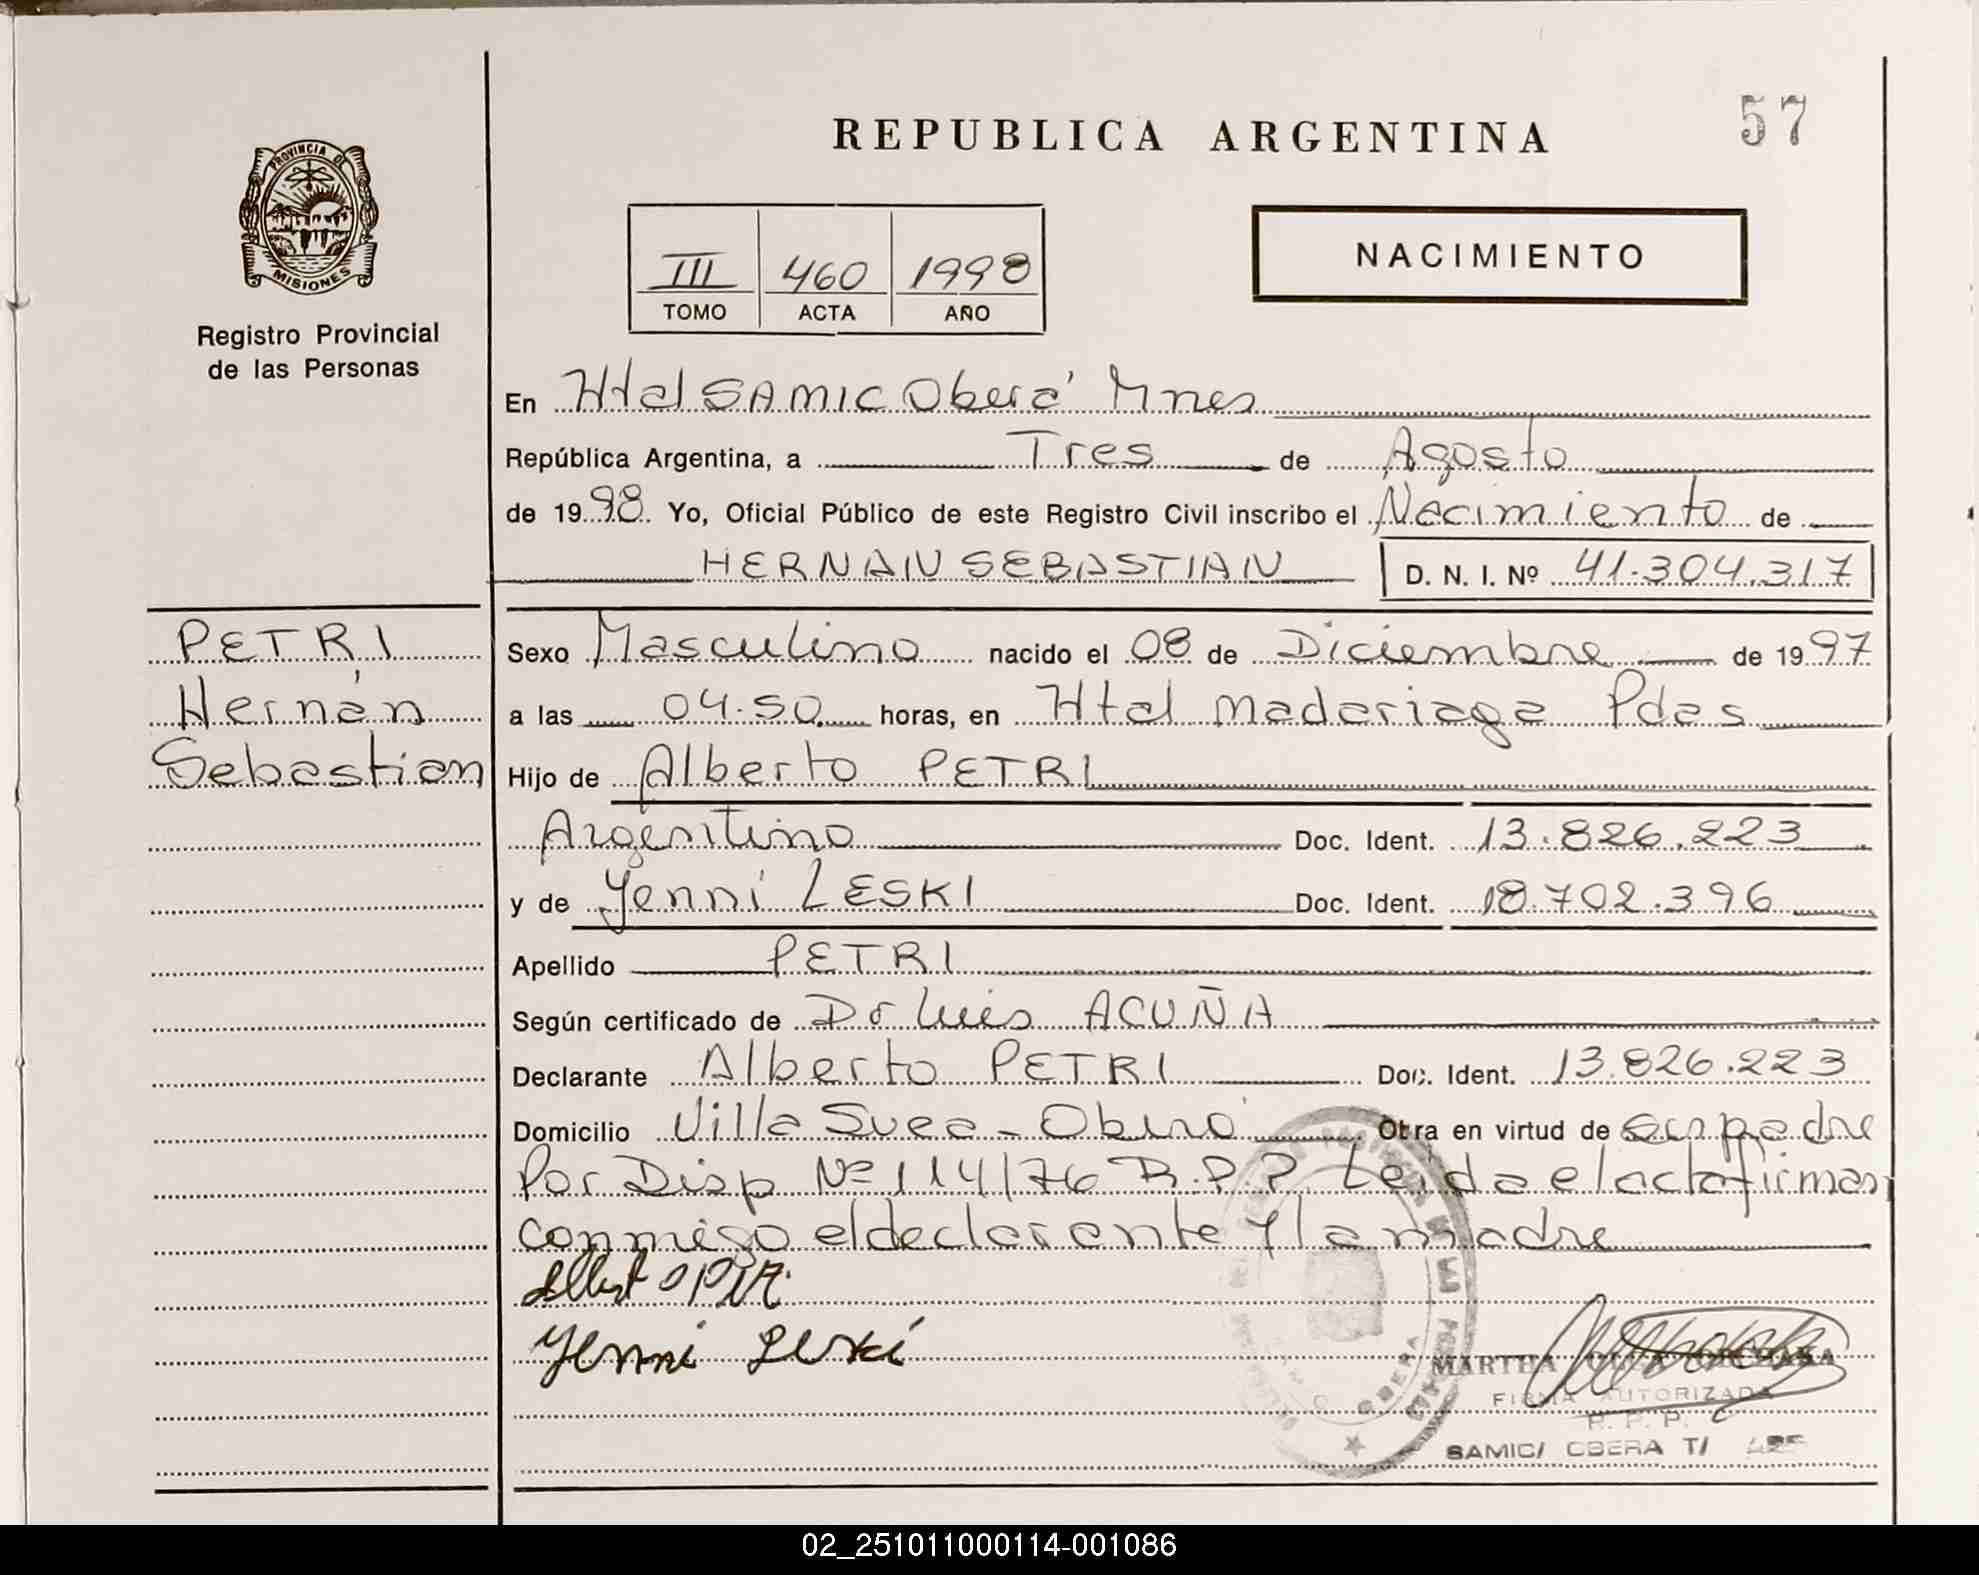 57
REPUBLICA ARGENTINA
PROVINCIA DE
MISIONES
Registro Provincial
de las Personas
NACIMIENTO
III 460 1998
TOMO ACTA AÑO
En Htal SAMIC Oberá Mnes
República Argentina, a Tres de Agosto
de 1998. Yo, Oficial Público de este Registro Civil inscribo el Nacimiento de
HERNAN SEBASTIAN D. N. I. Nº 41.304.317
PETRI
Hernán
Sebastian
Sexo Masculino nacido el 08 de Diciembre de 1997
a las 04.50 horas, en Htal Madariaga Pdas
Hijo de Alberto PETRI
Argentino Doc. Ident. 13.826.223
y de Yenni LESKI Doc. Ident. 18.702.396
Apellido PETRI
Según certificado de Dr Luis ACUÑA
Declarante Alberto PETRI Doc. Ident. 13.826.223
Domicilio Villa Svea - Oberá Obra en virtud de ser padre
Por Disp Nº 114/76 R.P.P. Leida el acta firman
conmigo el declarante y la madre
Yenni Leski
MARTHA
FIRMA AUTORIZADA
R. P. P.
SAMIC/ OBERA T/
OBERA
02_251011000114-001086